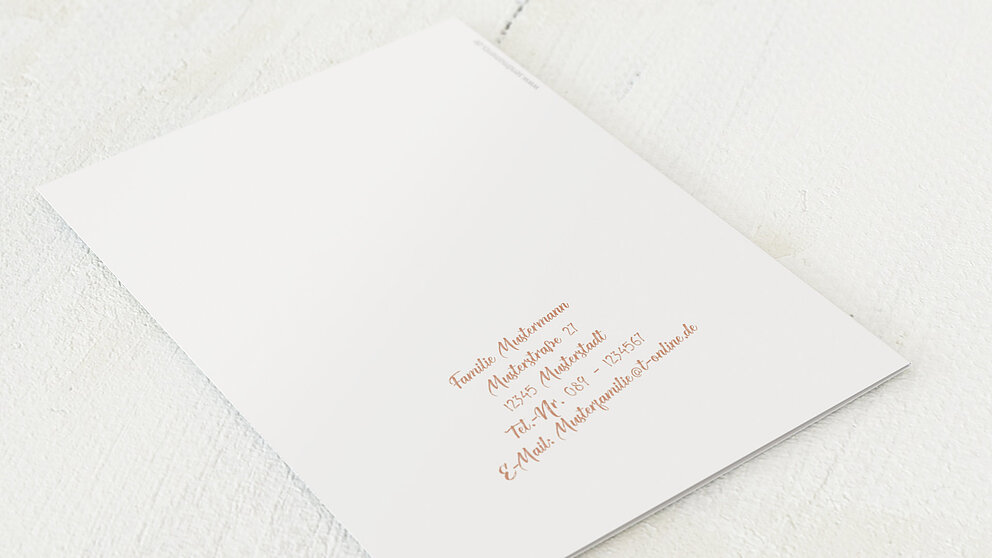 Familie Mustermann
Musterstraße 27
12345 Musterstadt
Tel.-Nr. 089 - 1234567
E-Mail: Musterfamilie@t-online.de